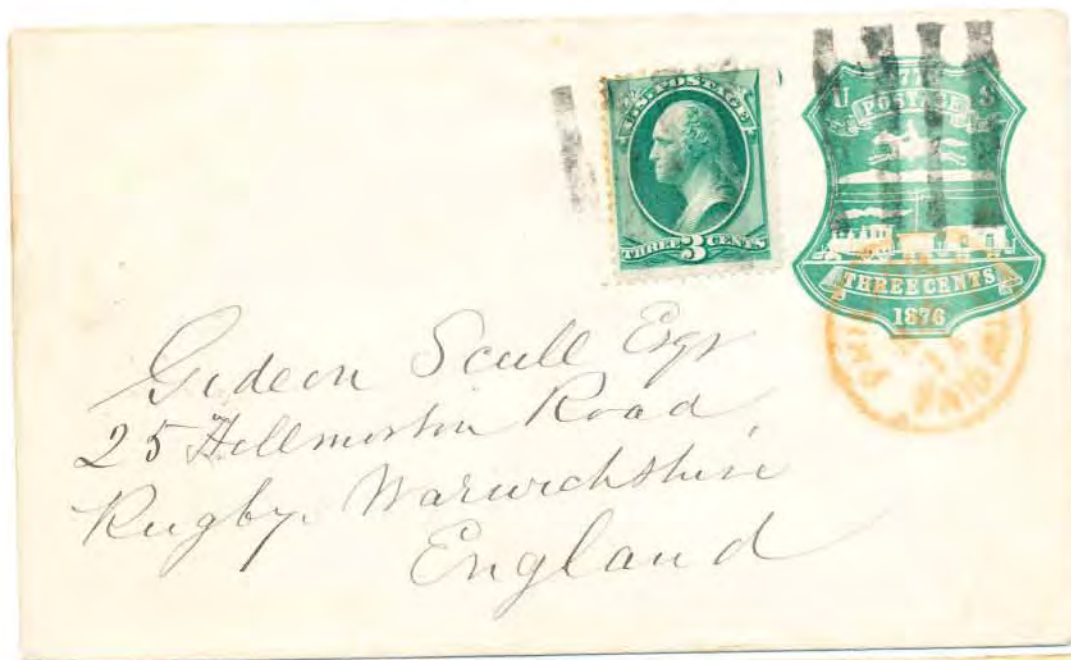 U. S. POSTAGE
THREE 3 CENTS
U S
POSTAGE
THREE CENTS
1876
PAID
Gideon Scull Esqr
25 Hillmorton Road,
Rugby. Warwickshire
England